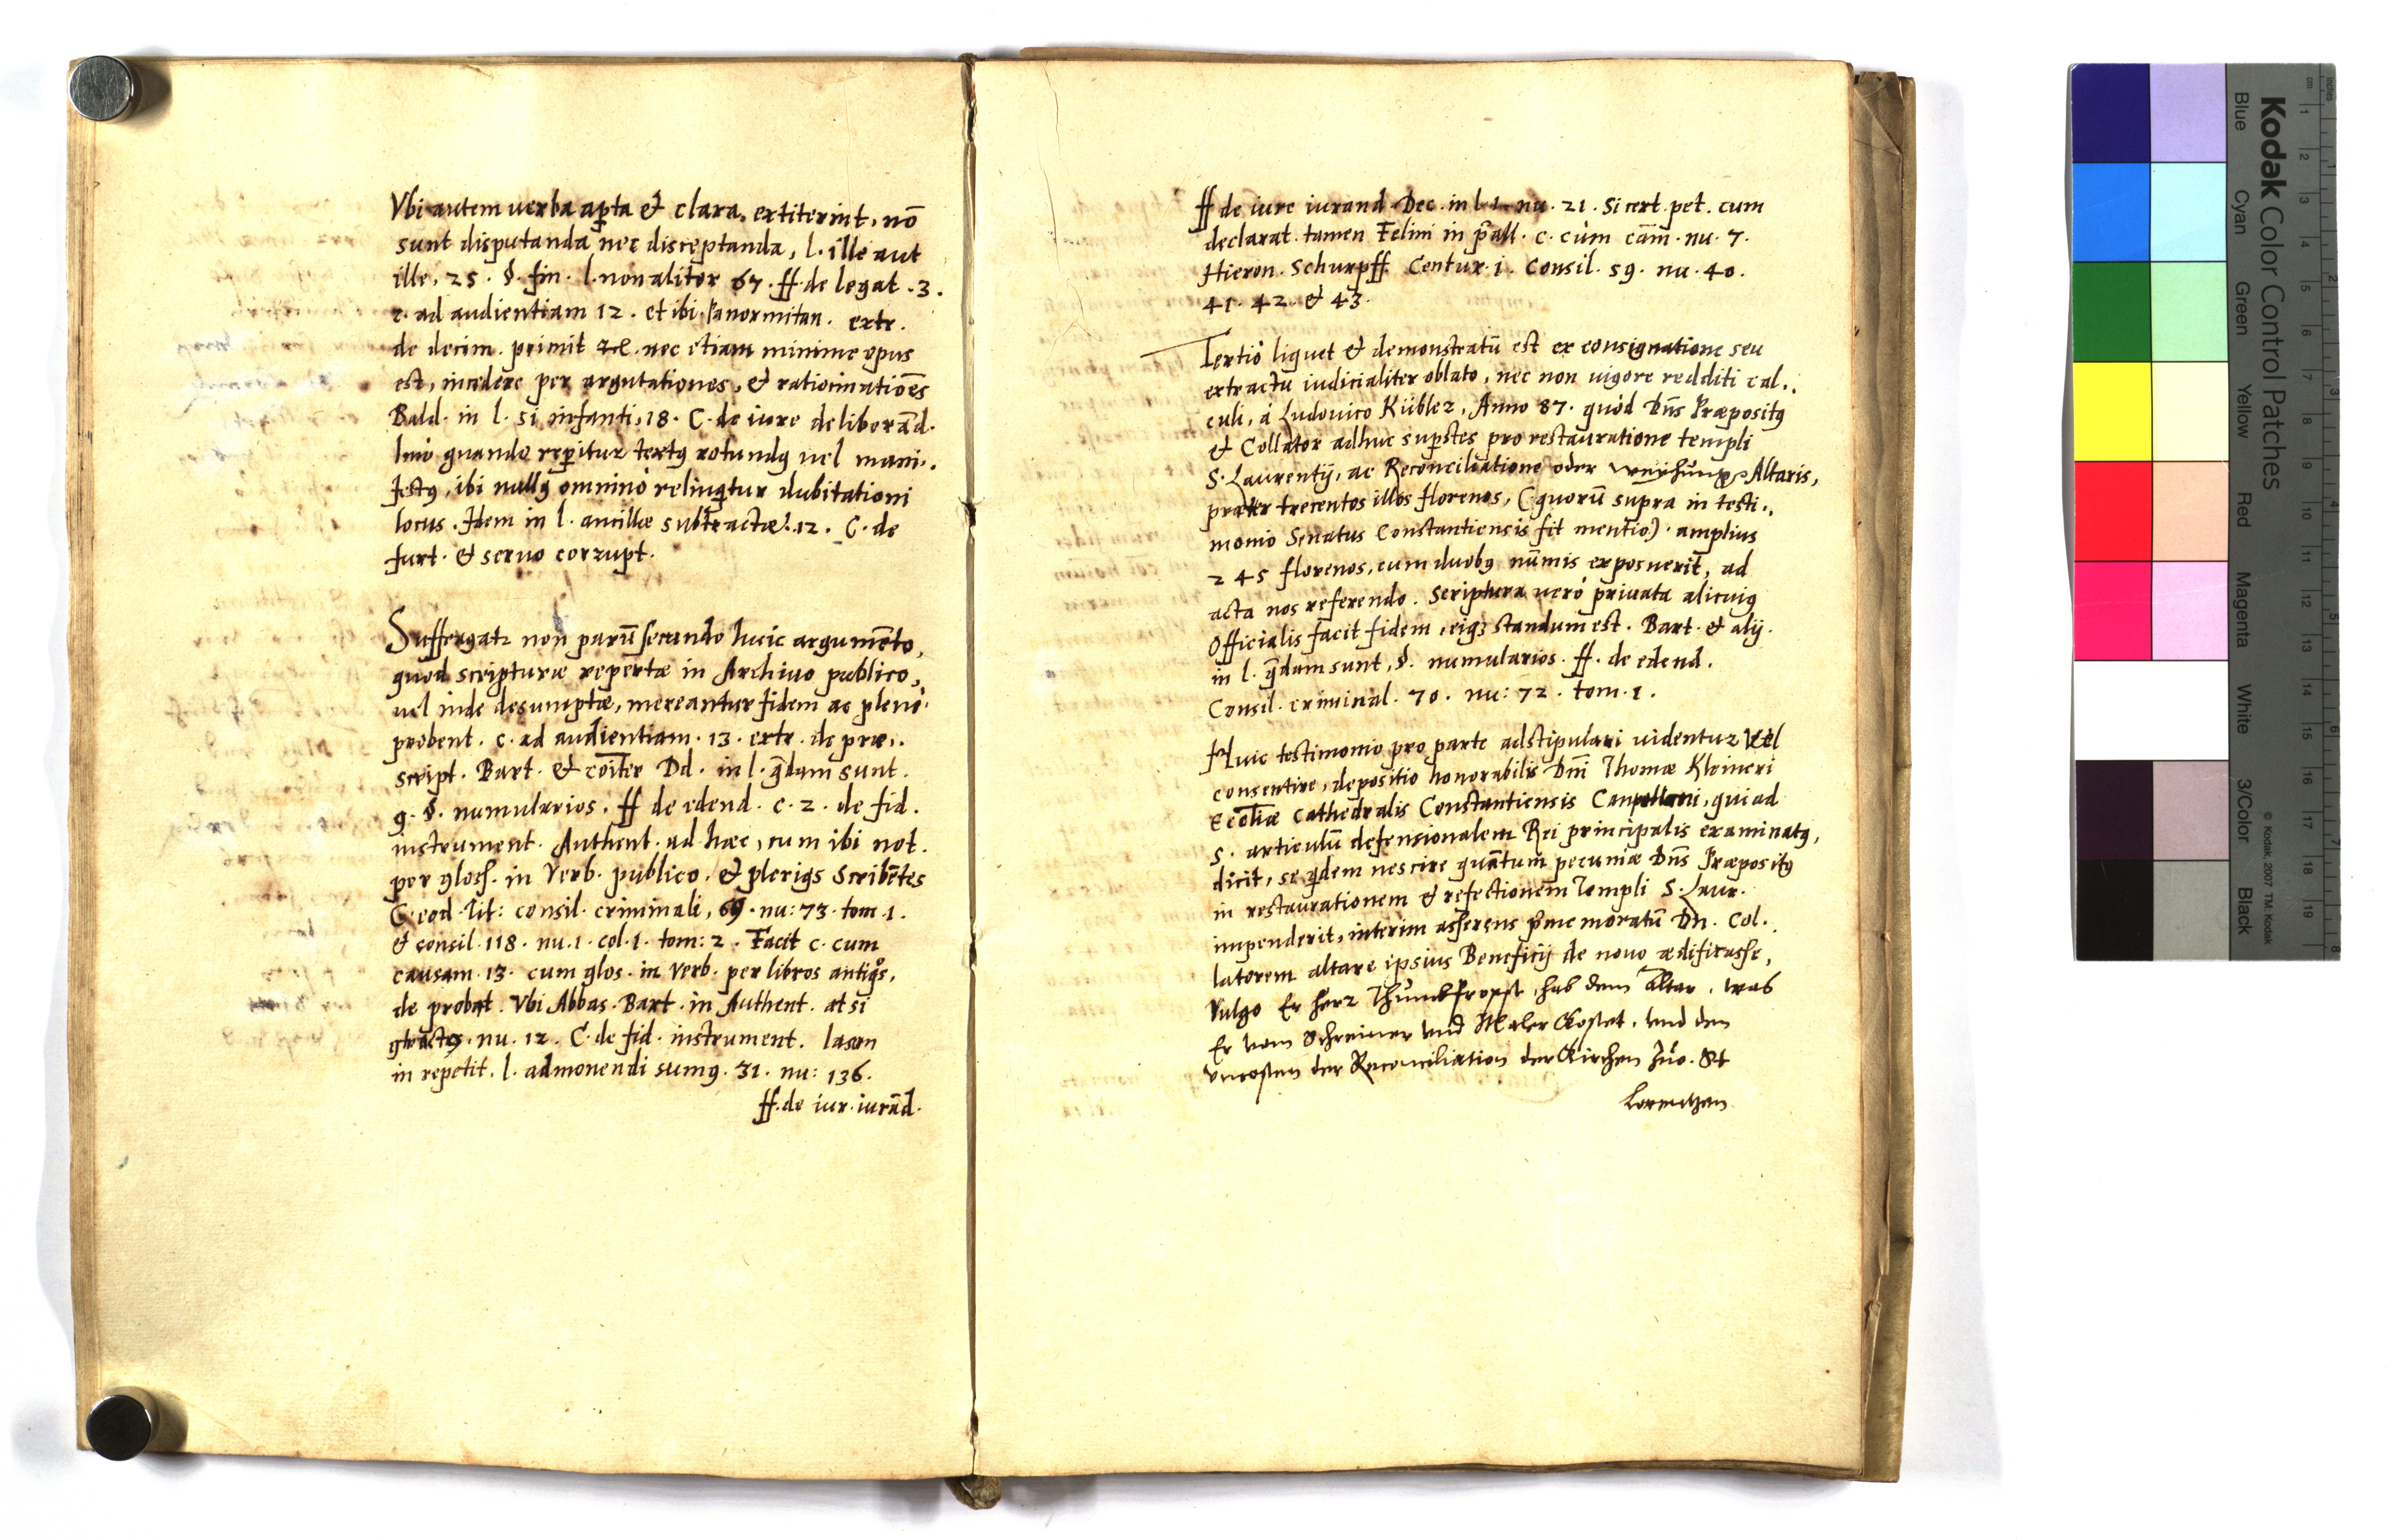 Vbi autem uerba ap̱ta & clara, extiterint, nō
sunt disputanda nec disceptanda, l. ille aut
ille, 25. §. fin. l. non aliter 67. ff. de legat. 3.
c. ad audientiam 12. et ibi Panormitan. extr.
de decim. primit &c. nec etiam minime opus
est, incedere per argutationes, & ratiocinatiōes
Bald. in l. si infanti, 18. C. de iure deliberād.
Imò quando rep̱itur textꝰ rotundꝰ uel mani..
festꝰ, ibi nullꝰ omninò relinq̄tur dubitationi
locus. Idem in l. ancillæ subtractæ. 12. C. de
furt. & seruo corrupt.
Suffragatꝛ non parū secundo huic argumēto,
quod scripturæ repertæ in Archiuo publico,
uel inde desumptæ, mereantur fidem ac plenè
probent. c. ad audientiam. 13. extr. de præ..
script. Bart. & cōiter Dd. in l. q̄dam sunt.
9. §. numularios. ff de edend. c. 2. de fid.
instrument. Authent. ad hæc, cum ibi not.
per gloss. in Verb. publico. & plerigs Scribētes
C. eod. Tit: consil. criminali, 69. nu: 73. tom. 1.
& consil. 118. nu. 1. col. 1. tom: 2. Facit c. cum
causam. 13. cum glos. in Verb. per libros antiqͦs,
de probat. Vbi Abbas. Bart. in Authent. at si
nu. 12. C. de fid. instrument. Iason
in repetit. l. admonendi sumꝰ. 31. nu: 136.
ff. de iur. iurād.
ff de iure iurand. Dec. in l. 1. nu. 21. Si cert. pet. cum
declarat. tamen Felini in p̄all. c. cùm cām. nu. 7.
Hieron. Schurpff. Centur. i. Consil. 59. nu. 40.
41. 42. & 43.
Tertiò liquet & demonstratū est ex consignatione seu
extractu iudicialiter oblato, nec non uigore redditi cal..
culi, à Ludouico Kübler, Anno 87. quòd Dn̄s Præpositꝰ
& Collator adhuc sup̱stes pro restauratione templi
S. Laurentij, ac Reconciliatione oder Weyhung Altaris,
præter trecentos illos florenos, (quorū supra in testi..
monio Senatus Constantiensis fit mentio) amplius
245 florenos, cum duobꝰ nūmis exposuerit, ad
acta nos referendo. Scriptura uerò priuata alicuiꝰ
Officialis facit fidem, eiqꝫ standum est. Bart. & alij.
in l. q̄dam sunt, §. numularios. ff. de edend.
Consil. criminal. 70. nu: 72. tom. 1.
Huic testimonio pro parte adstipulari uidentur Vel
consentire, depositio honorabilis Dn̄i Thomæ Kleineri
Eccliæ Cathedralis Constantiensis Canpellani, qui ad
5. articulū defensionalem Rei principalis examinatꝰ,
dicit, se q̇dem nescire quātum pecuniæ Dn̄s Præpositꝰ
in restaurationem & refectionem Templi S. Laur.
impenderit, interim asserens p̄memoratū Dn. Col..
latorem altare ipsius Beneficij de nouo ædificasse,
Vulgo Er herr Thumbpropst, hab dem Altar, was
Er vom Schreiner vnd Maler Costet, vnd den
vncosten der Reconciliation der Kirchen Zuo. St
Lorentzen